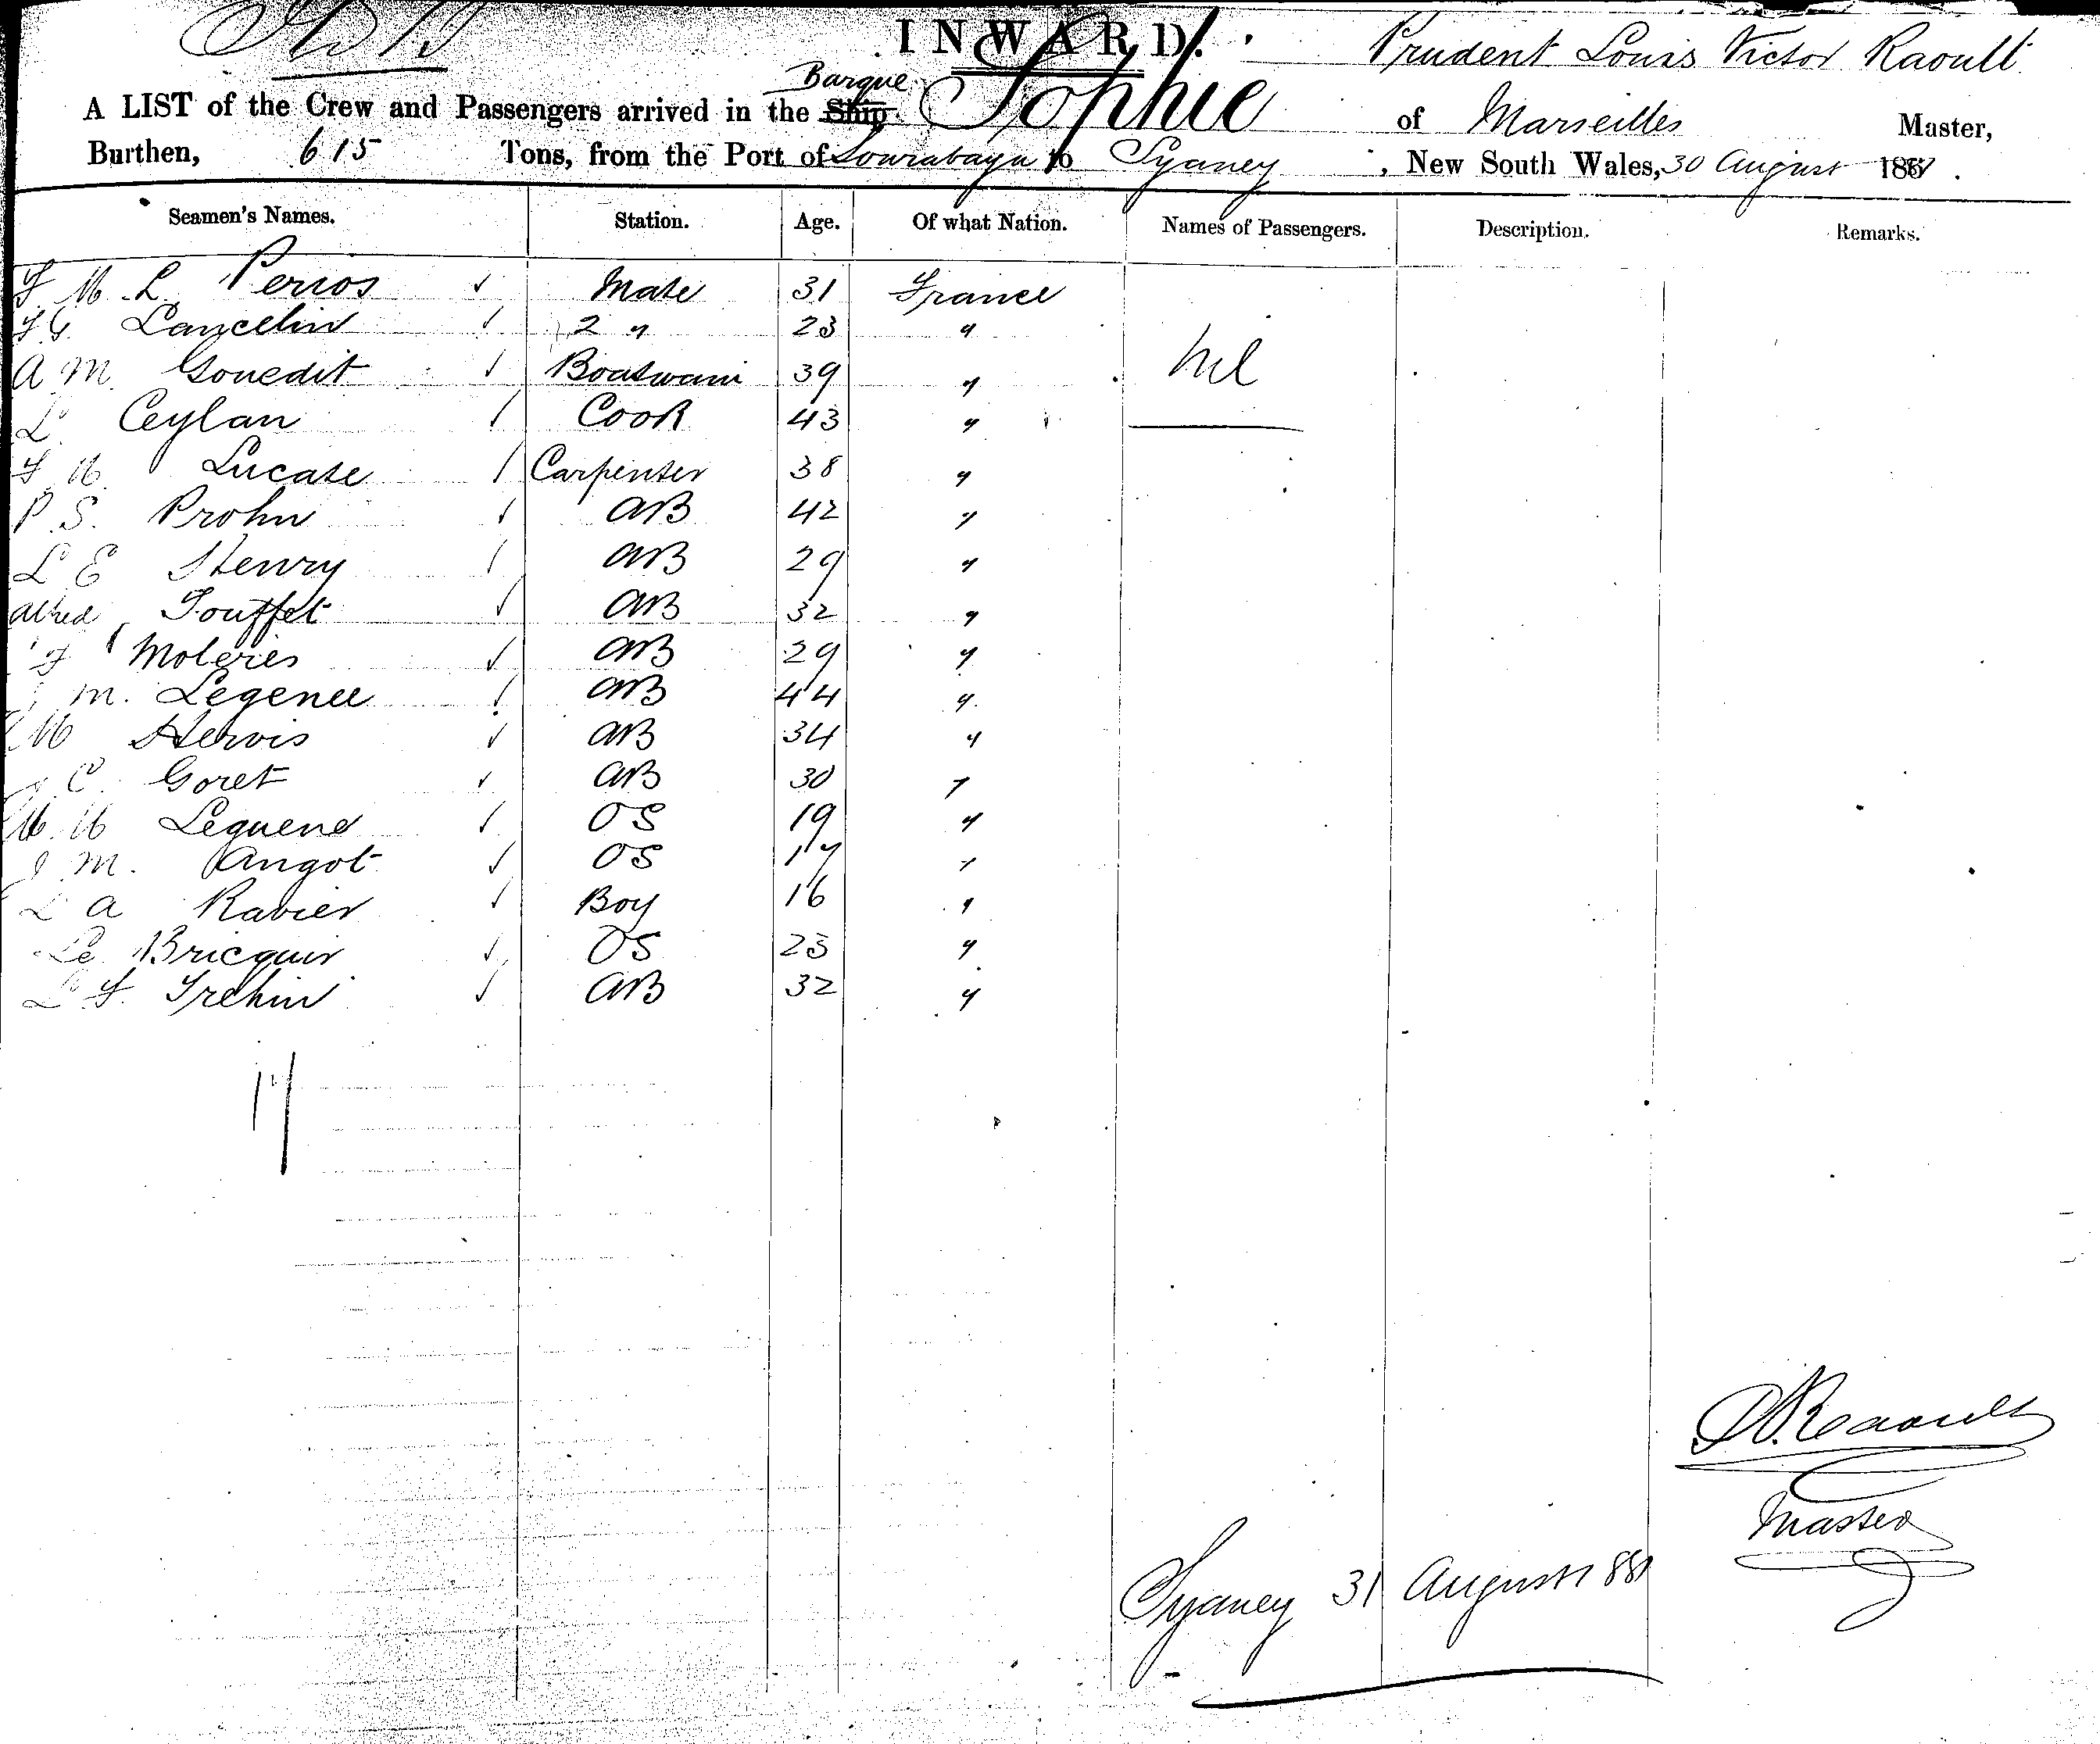 INWARD.
Prudent Louis Victor Raoult
Barque
A LIST of the Crew and Passengers arrived in the Ship Sophie of Marseilles Master,
Burthen, 615 Tons, from the Port of Sourabaya to Sydney, New South Wales, 30 August 1881.
Seamen's Names. Station. Age. Of what Nation. Names of Passengers. Description. Remarks.
F M L Perros ✓ Mate 31 France
Lancelin ✓ 2 " 23 "
Nil
A M. Gouedit ✓ Boatswain 39 "
L. Ceylan ✓ Cook 43 "
F M Lucase ✓ Carpenter 38 "
P. S. Prohn ✓ AB 42 "
L E Henry ✓ AB 29 "
Alfred Touffet ✓ AB 32 "
F Moleres ✓ AB 29 "
M. Legenee ✓ AB 44 "
M Hervis ✓ AB 34 "
C. Goret ✓ AB 30 "
M. M Leguene ✓ OS 19 "
J M. Angot ✓ OS 17 "
L A Ravier ✓ Boy 16 "
Le Bricquir ✓ OS 23 "
L F. Trehin ✓ AB 32 "
17
Raoult
Master
Sydney 31 August 1881